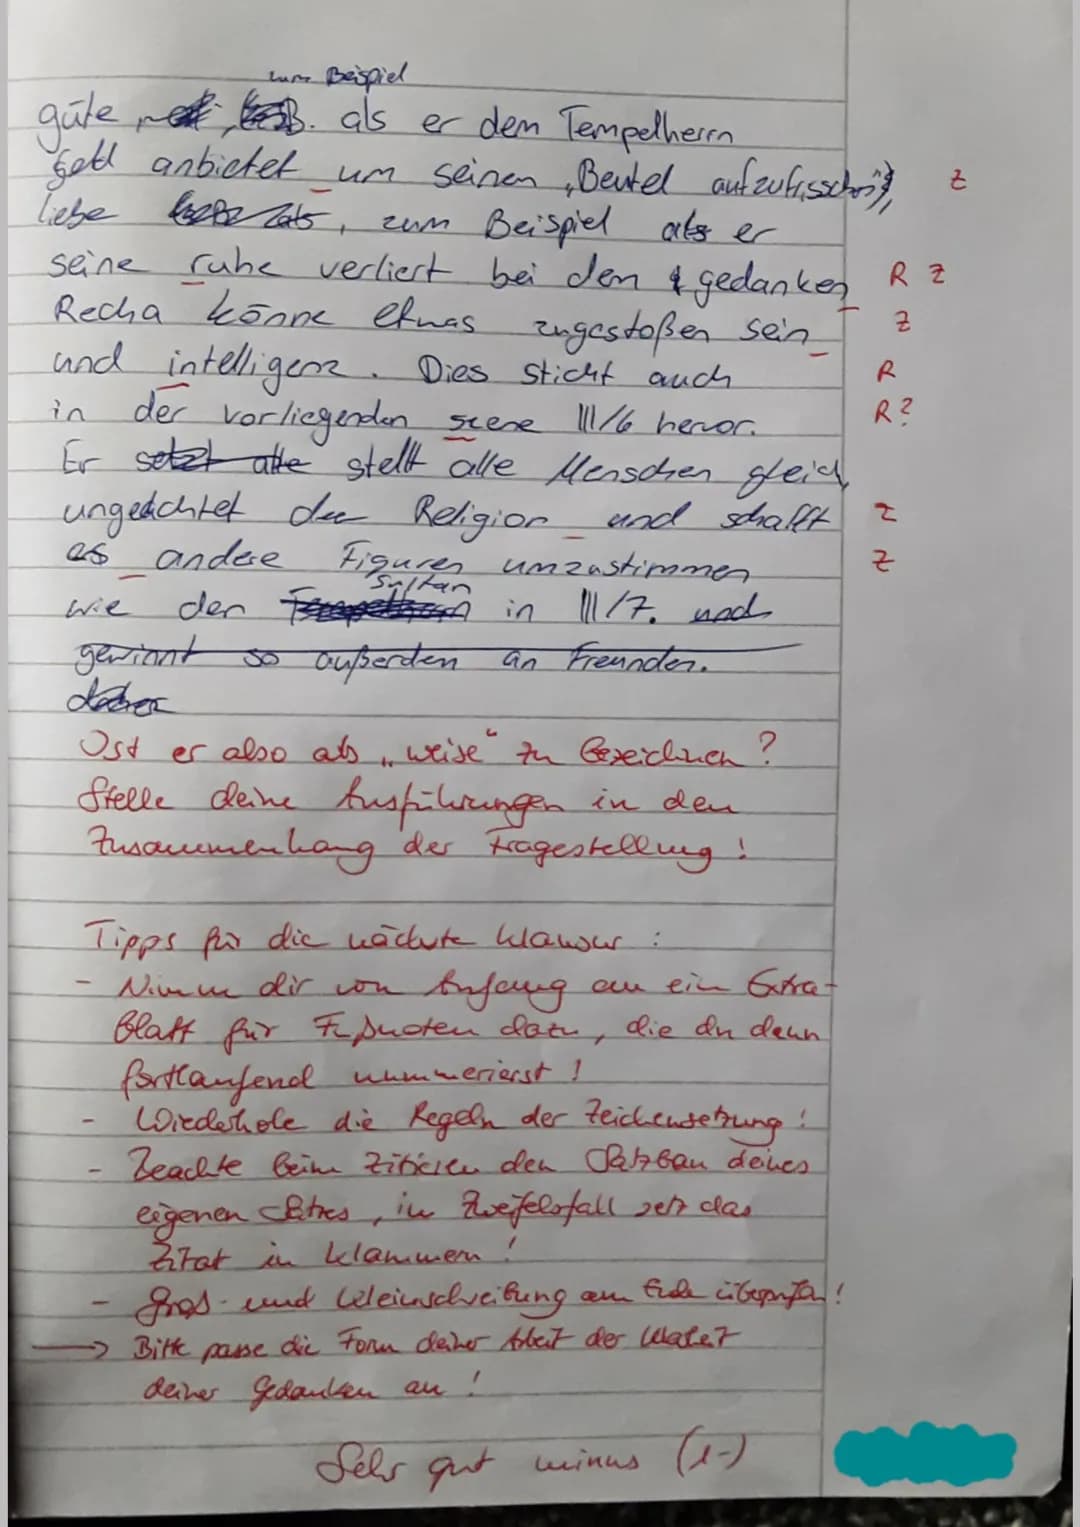 zum Beispiel
güte als er dem Tempelherrn
Geld anbietet um seinen „Beutel Z
liebe, zum Beispiel als er
seine ruhe verliert bei den gedanken R Z
Recha könne etwas zugestoßen sein Z
und intelligenz. Dies sticht auch R
in der vorliegenden scene III/6 hervor. R?
Er setzt alle stellt alle Menschen gleich
ungeachtet der Religion und schafft Z
es andere Figuren umzustimmen Z
Sultan
wie den Tempelherrn in III/7. und
gewinnt so außerdem an Freunden.
daher
Ist er also als „weise“ zu bezeichnen?
Stelle deine Ausführungen in den
Zusammenhang der Fragestellung!
Tipps für die nächste Klausur:
- Nimm dir von Anfang an ein Extra-
blatt für Fußnoten dazu, die du dann
fortlaufend nummerierst!
- Wiederhole die Regeln der Zeichensetzung!
- Beachte beim Zitieren den Satzbau deines
eigenen Satzes, im Zweifelsfall setz das
Zitat in Klammern!
- Groß- und Kleinschreibung am Ende überprüfen!
→ Bitte passe die Form deiner Arbeit der Klarheit
deiner Gedanken an!
Sehr gut minus (1-)